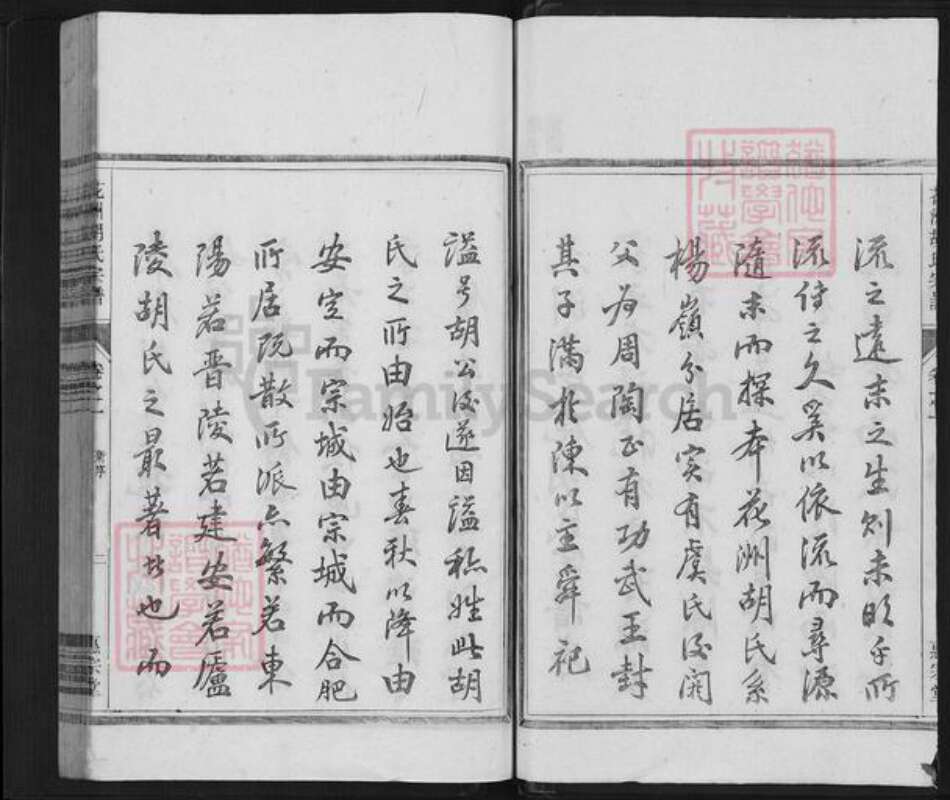 流之遠末之生則未明乎所
流待之久奚以依流而尋源
隨末而探本花洲胡氏系
楊嶺分居实有虞氏後閼
父为周陶正有功武王封
其子滿於陳以主舜祀
謚号胡公後遂因謚称姓此胡
氏之所由始也春秋以降由
安定而宗城由宗城而合肥
所居既散所派亦繁若東
陽若晋陵若建安若廬
陵胡氏之最著者也而
花洲胡氏宗譜
惠宗堂
FamilySearch